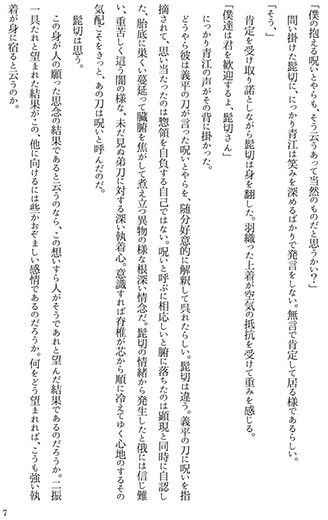 「僕の抱える呪いとやらも、そう云うあって当然のものだと思うかい？」
問い掛けた髭切に、にっかり青江は笑みを深めるばかりで発言をしない。無言で肯定して居る様であるらしい。
「そう。」
肯定を受け取り諾としながら髭切は身を翻した。羽織った上着が空気の抵抗を受けて重みを感じる。
「僕達は君を歓迎するよ、髭切さん」
にっかり青江の声がその背に掛かった。
どうやら彼は義平の刀が言った呪いとやらを、随分好意的に解釈して呉れたらしい。髭切は違う。義平の刀に呪いを指
摘されて、思い当たったのは惣領を自負する自己ではない。呪いと呼ぶに相応しいと腑に落ちたのは顕現と同時に自認し
た、胎底に巣くい蔓延って臓腑を焦がして煮え立つ異物の様な根深い情念だ。髭切の情緒から発生したと俄には信じ難
い、重苦しく這う闇の様な、未だ見ぬ弟刀に対する深い執着心。意識すれば脊椎が芯から順に冷えてゆく心地のするその
気配こそをきっと、あの刀は呪いと呼んだのだ。
髭切は思う。
この身が人の願った思念の結果であると云うのなら、この想いすら人がそうであれと望んだ結果であるのだろうか。二振
一具たれと望まれた結果がこの、他に向けるには些かおぞましい感情であるのだろうか。何をどう望まれれば、こうも強い執
着が身に宿ると云うのか。
7